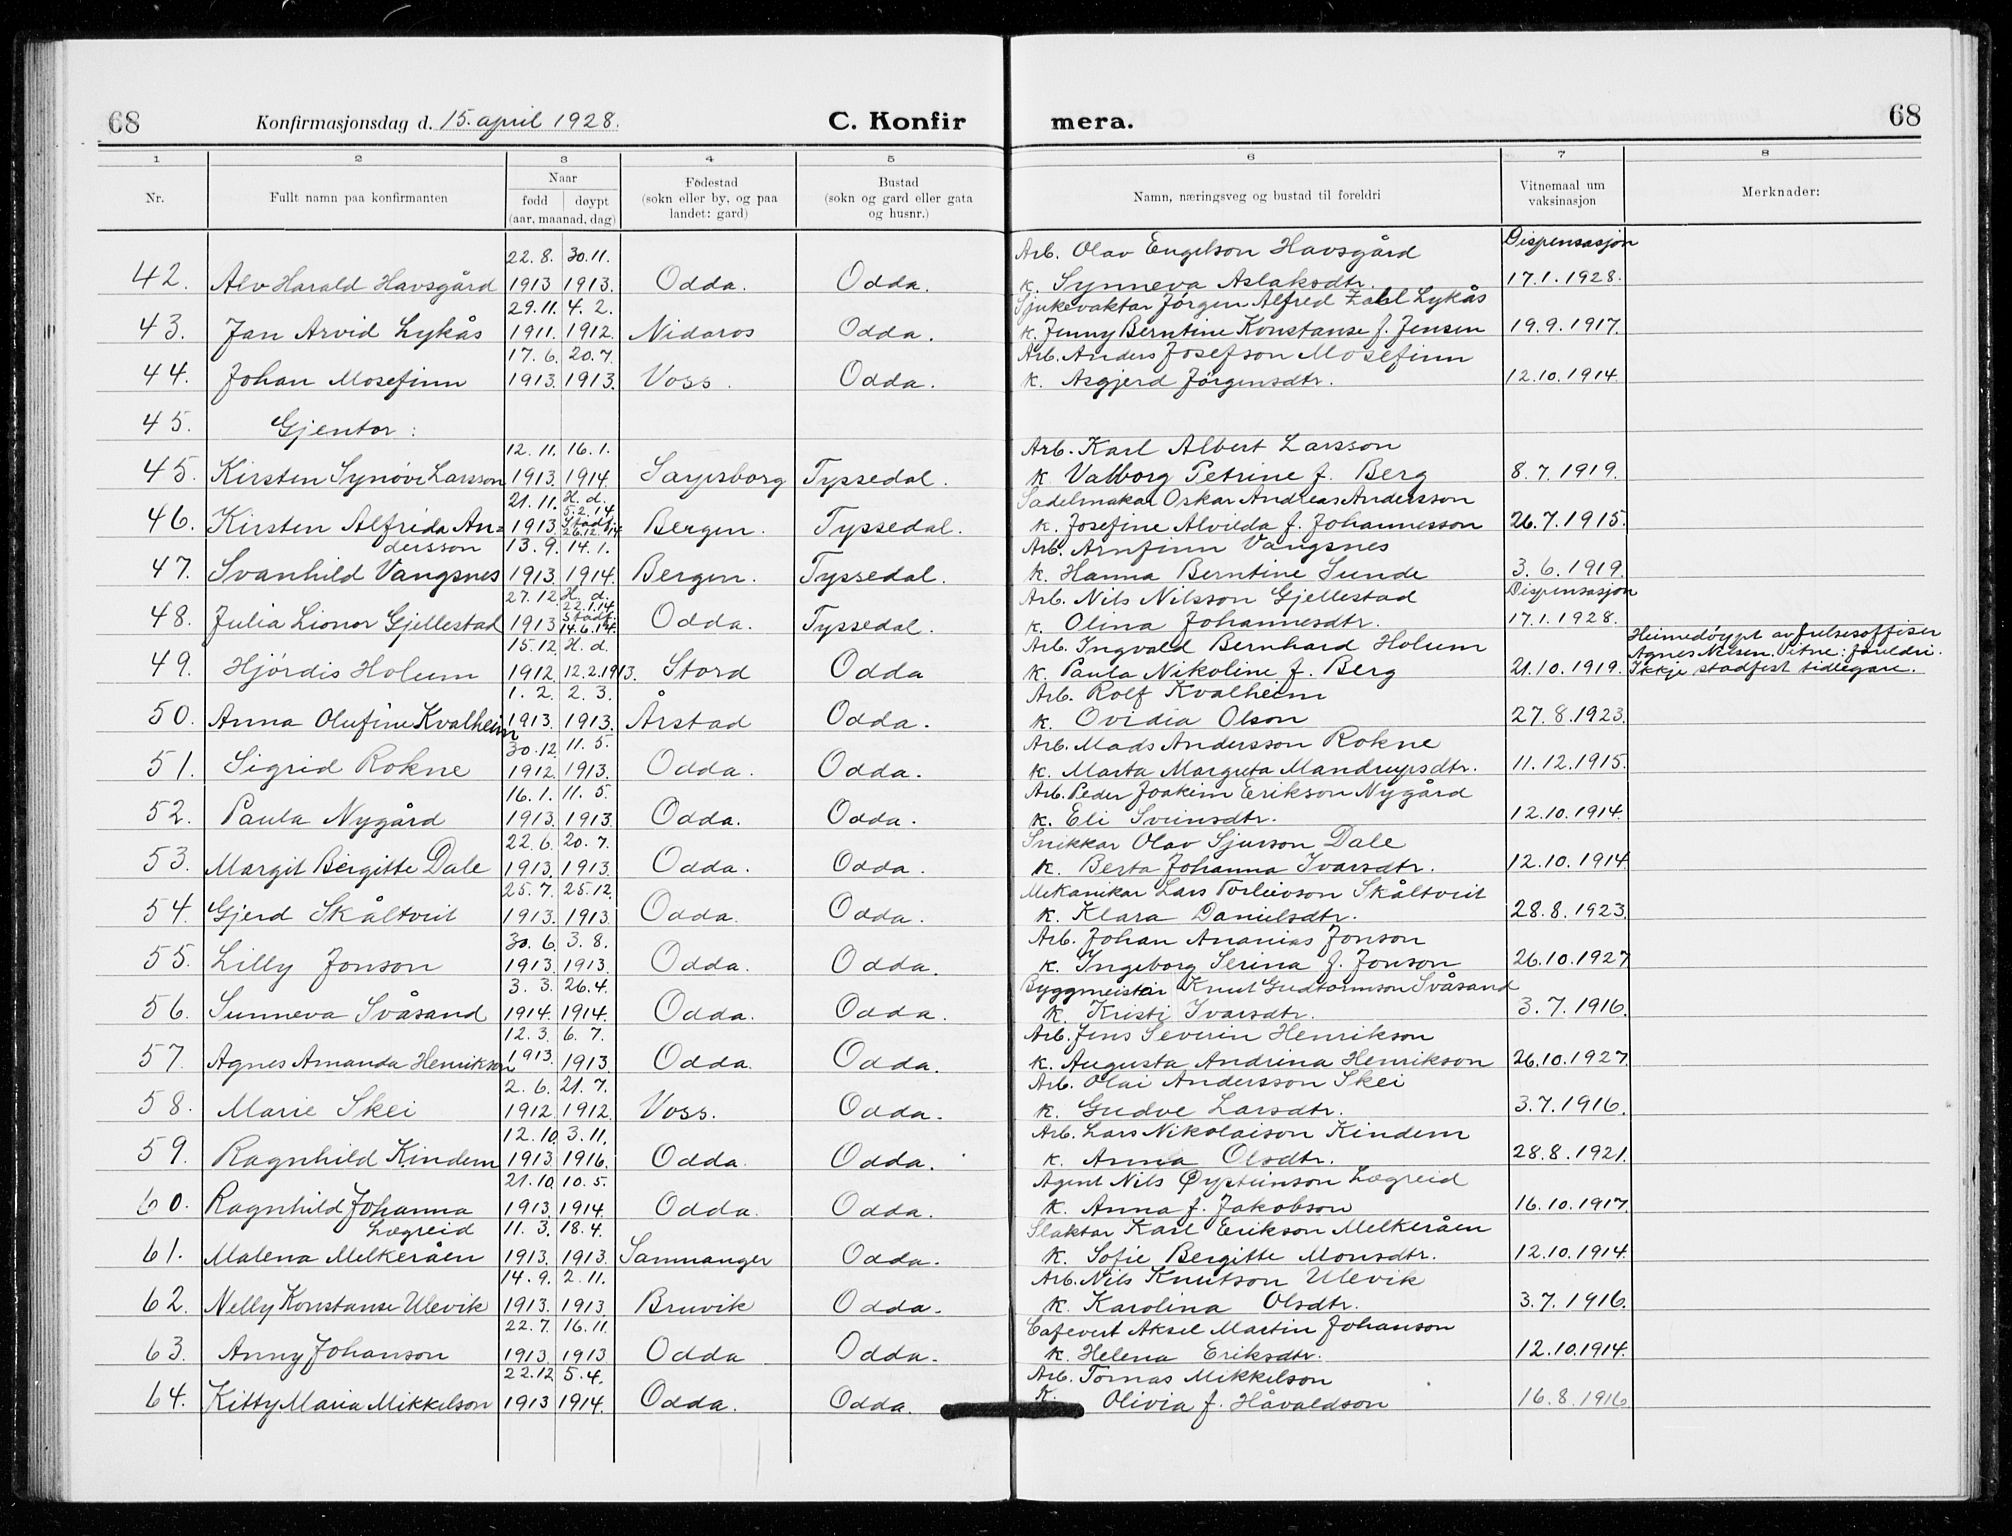 68 Konfirmasjonsdag d. 15. april 1928. C. Konfir mera. 68
1 2 3 4 5 6 7 8
Nr. Fullt namn paa konfirmanten Naar fødd døypt (aar, maanad, dag) Fødestad (sokn eller by, og paa landet: gard) Bustad (sokn og gard eller gata og husnr.) Namn, næringsveg og bustad til foreldri Vitnemaal um vaksinasjon Merknader:
22.8. 30.11. Arb. Olav Engelson Havsgård Dispensasjon
42. Alv Harald Havsgård 1913 1913. Odda. Odda. k. Synneva Aslaksdtr. 17.1.1928.
29.11. 4.2. Sjukevaktar Jørgen Alfred Zahl Lykås
43. Jan Arvid Lykås 1911. 1912. Nidaros Odda. k. Jenny Berntine Konstanse f. Jensen 19.9.1917.
17.6. 20.7. Arb. Anders Josefson Mosefinn
44. Johan Mosefinn 1913. 1913. Voss. Odda. k. Asgjerd Jørgensdtr. 12.10.1914.
45. Gjentor:
12.11. 16.1. Arb. Karl Albert Larsson
45. Kirsten Synøve Larsson 1913. 1914. Sarpsborg Tyssedal. k Valborg Petrine f. Berg 8.7.1919.
21.11. H. d. 5.2.14 Sadelmakar Oskar Andreas Andersson
46. Kirsten Alfrida An= 1913. Stadf. 26.12.14 Bergen. Tyssedal. k. Josefine Alvilda f. Johannesson 26.7.1915.
dersson 13.9. 14.1. Arb. Arnfinn Vangsnes
47. Svanhild Vangsnes 1913. 1914. Bergen. Tyssedal. k. Hanna Berntine Sunde 3.6.1919.
27.12 H. d. 22.1.14 Arb. Nils Nilsson Gjellestad Dispensasjon
48. Julia Lionor Gjellestad 1913 Stadf. 14.6.14. Odda. Tyssedal. k. Olina Johannesdtr. 17.1.1928.
15.12. H. d. Arb. Ingvald Bernhard Holum Heimedøypt av frelsesoffiser
Agnes Nilsen. Vitne: foreldri.
49. Hjördis Holum 1912. 12.2.1913. Stord Odda k. Paula Nikoline f. Berg 21.10.1919. Ikkje stadfest tidlegare.
1.2. 2.3. Arb. Rolf Kvalheim
50. Anna Olufine Kvalheim 1913. 1913. Årstad Odda. k. Ovidia Olson 27.8.1923.
30.12. 11.5. Arb. Mads Andersson Rokne
51. Sigrid Rokne 1912. 1913. Odda. Odda. k. Marta Margreta Mandrupsdtr. 11.12.1915.
16.1. 11.5. Arb. Peder Joakim Erikson Nygård
52. Paula Nygård 1913. 1913. Odda. Odda. k. Eli Sveinsdtr. 12.10.1914.
22.6. 20.7. Snikkar Olav Sjurson Dale
53. Margit Bergitte Dale 1913. 1913. Odda. Odda. k. Berta Johanna Ivarsdtr. 12.10.1914
25.7. 25.12. Mekanikar Lars Torleivson Skåltveit
54. Gjerd Skåltveit 1913. 1913. Odda. Odda. k. Klara Danielsdtr. 28.8.1923.
30.6. 3.8. Arb. Johan Ananias Jonson
55. Lilly Jonson 1913. 1913. Odda. Odda. k. Ingeborg Serina f. Jonson 26.10.1927
3.3. 26.4. Byggmeister Knut Gudtormson Svåsand
56. Sunneva Svåsand 1914. 1914. Odda. Odda. k. Kristi Ivarsdtr. 3.7.1916.
12.3. 6.7. Arb. Jens Severin Henrikson
57. Agnes Amanda Henrikson 1913. 1913. Odda. Odda. k. Augusta Andrina Henrikson 26.10.1927.
2.6. 21.7. Arb. Olai Andersson Skei
58. Marie Skei 1912. 1912. Voss. Odda. k. Gudve Larsdtr. 3.7.1916.
12.10. 3.11. Arb. Lars Nikolaison Kindem
59. Ragnhild Kindem 1913 1916. Odda. Odda. k. Anna Olsdtr. 28.8.1921.
21.10. 10.5. Agent Nils Øysteinson Lægreid
60. Ragnhild Johanna 1913. 1914. Odda. Odda. k. Anna f. Jakobson 16.10.1917.
Lægreid 11.3. 18.4. Slaktar Karl Erikson Melkeråen
61. Malena Melkeråen 1913. 1913. Samnanger Odda. k. Sofie Bergitte Monsdtr. 12.10.1914.
14.9. 2.11. Arb. Nils Knutson Ulevik
62. Nelly Konstanse Ulevik 1913. 1913. Bruvik Odda. k. Karolina Olsdtr. 3.7.1916.
22.7. 16.11. Cafevert Aksel Martin Johanson
63. Anny Johanson 1913. 1913 Odda Odda. k. Helena Eriksdtr. 12.10.1914.
22.12 5.4. Arb. Tomas Mikkelson
64. Kitty Maria Mikkelson 1913 1914. Odda. Odda. K. Olivia f. Håvaldson 16.8.1916